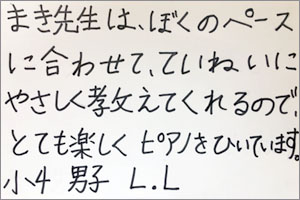 まき先生は、ぼくのペース
に合わせて、ていねいに
やさしく教えてくれるので、
とても楽しくピアノをひいています。
小4 男子 L.L